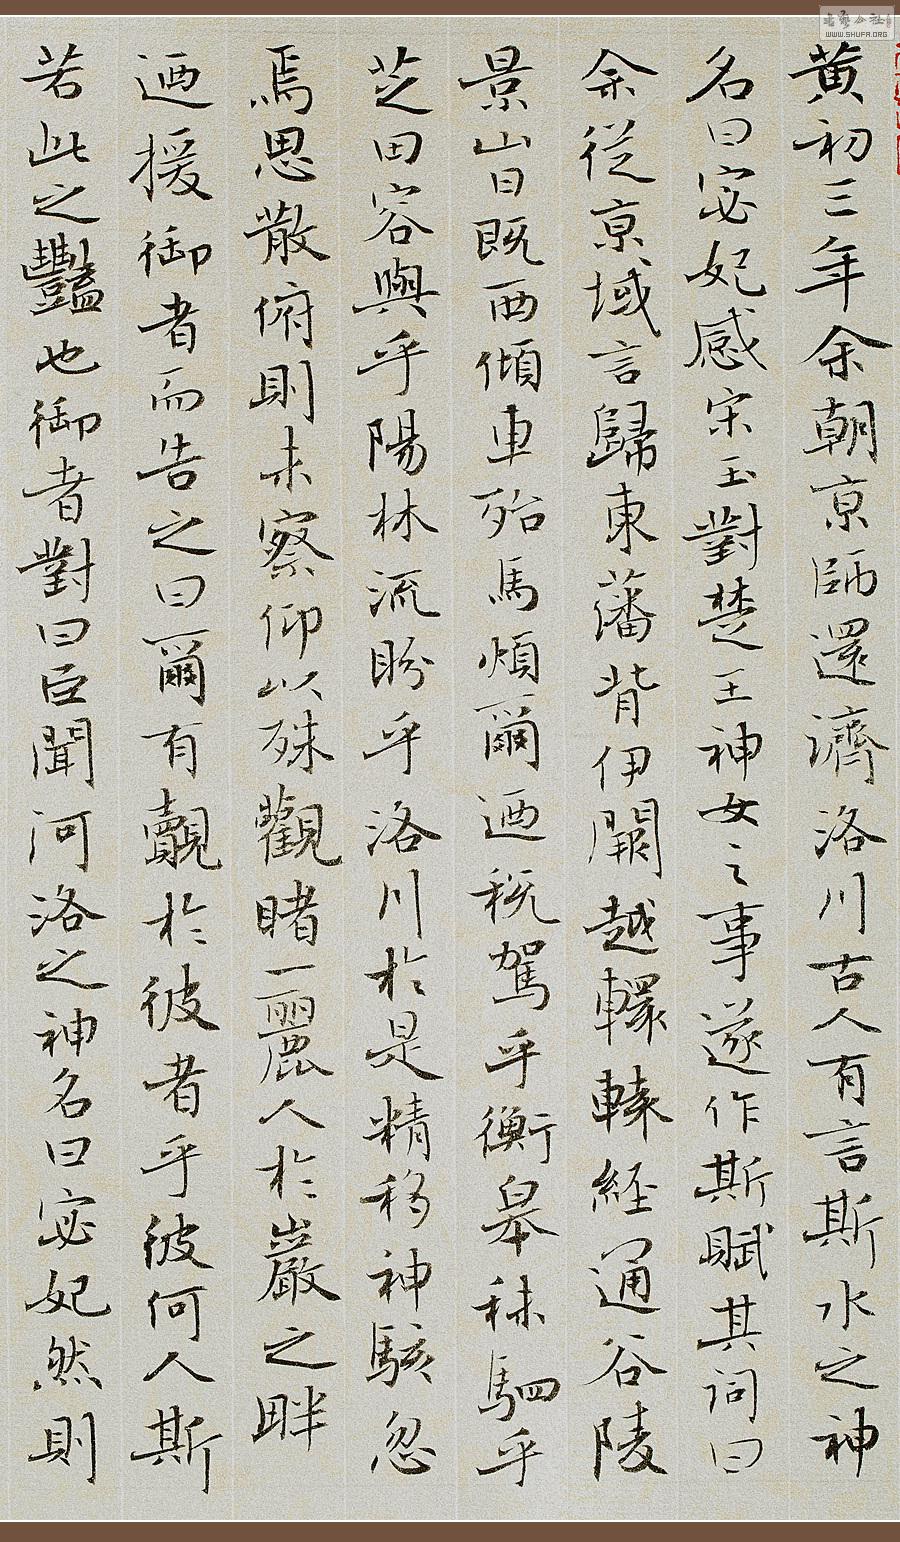 黄初三年余朝京師還濟洛川古人有言斯水之神
名曰宓妃感宋玉對楚王神女之事遂作斯賦其詞曰
余從京域言歸東藩背伊闕越轘轅經通谷陵
景山日既西傾車殆馬煩爾迺稅駕乎衡皋秣駟乎
芝田容與乎陽林流盼乎洛川於是精移神駭忽
焉思散俯則未察仰以殊觀睹一麗人於巖之畔
迺援御者而告之曰爾有覿於彼者乎彼何人斯
若此之豔也御者對曰臣聞河洛之神名曰宓妃然則
WWW.SHUFA.ORG